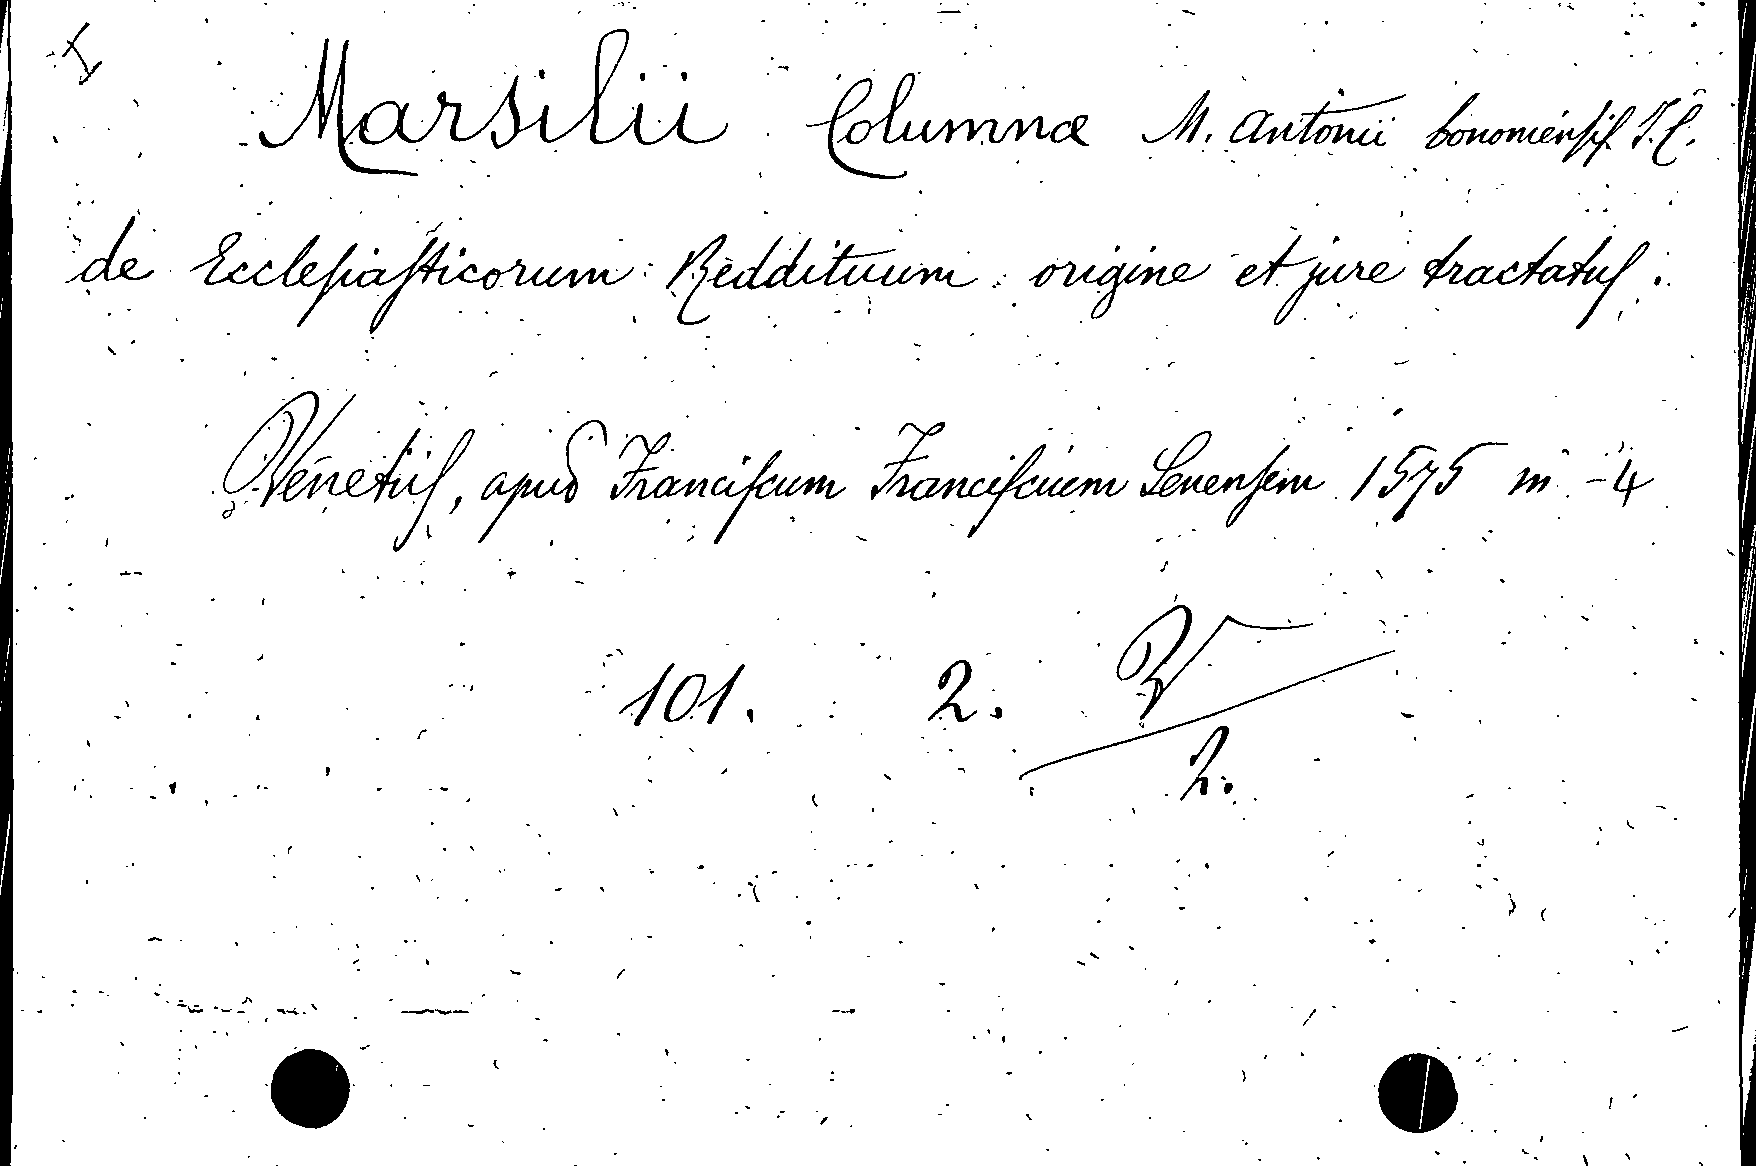 I
Marsilii Columnæ M. Antonii bononienſiſ I. C.
de Eccleſiaſticorum Reddituum origine et jure tractatuſ.
Venetiiſ, apud Franciſcum Franciſcium Senenſem 1575 in -4
101. 2. V
2.